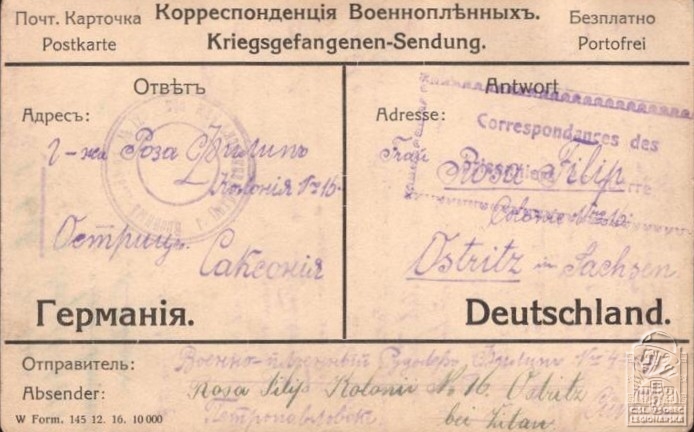 Почт. Карточка
Postkarte
Корреспонденція Военноплѣнныхъ.
Kriegsgefangenen-Sendung.
Безплатно
Portofrei
Отвѣтъ
Адресъ:
г-жа Роза Филипъ
Колонія № 16.
Остриц
Саксонія
Германія.
Antwort
Adresse:
Correspondances des
Frau Rosa Filip
Colonie No 16.
Ostritz in Sachsen
Deutschland.
Отправитель:
Военно-плѣнный Филипъ
Absender:
Rosa Filip Kolonie No 16. Ostritz
Петропавловск
bei Zitau.
W Form. 145 12. 16. 10 000